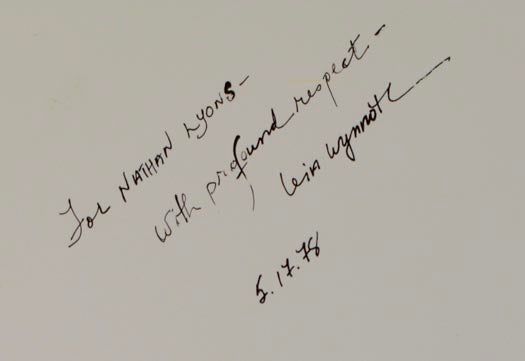 For NATHAN LYONS-
with profound respect-
5.17.78